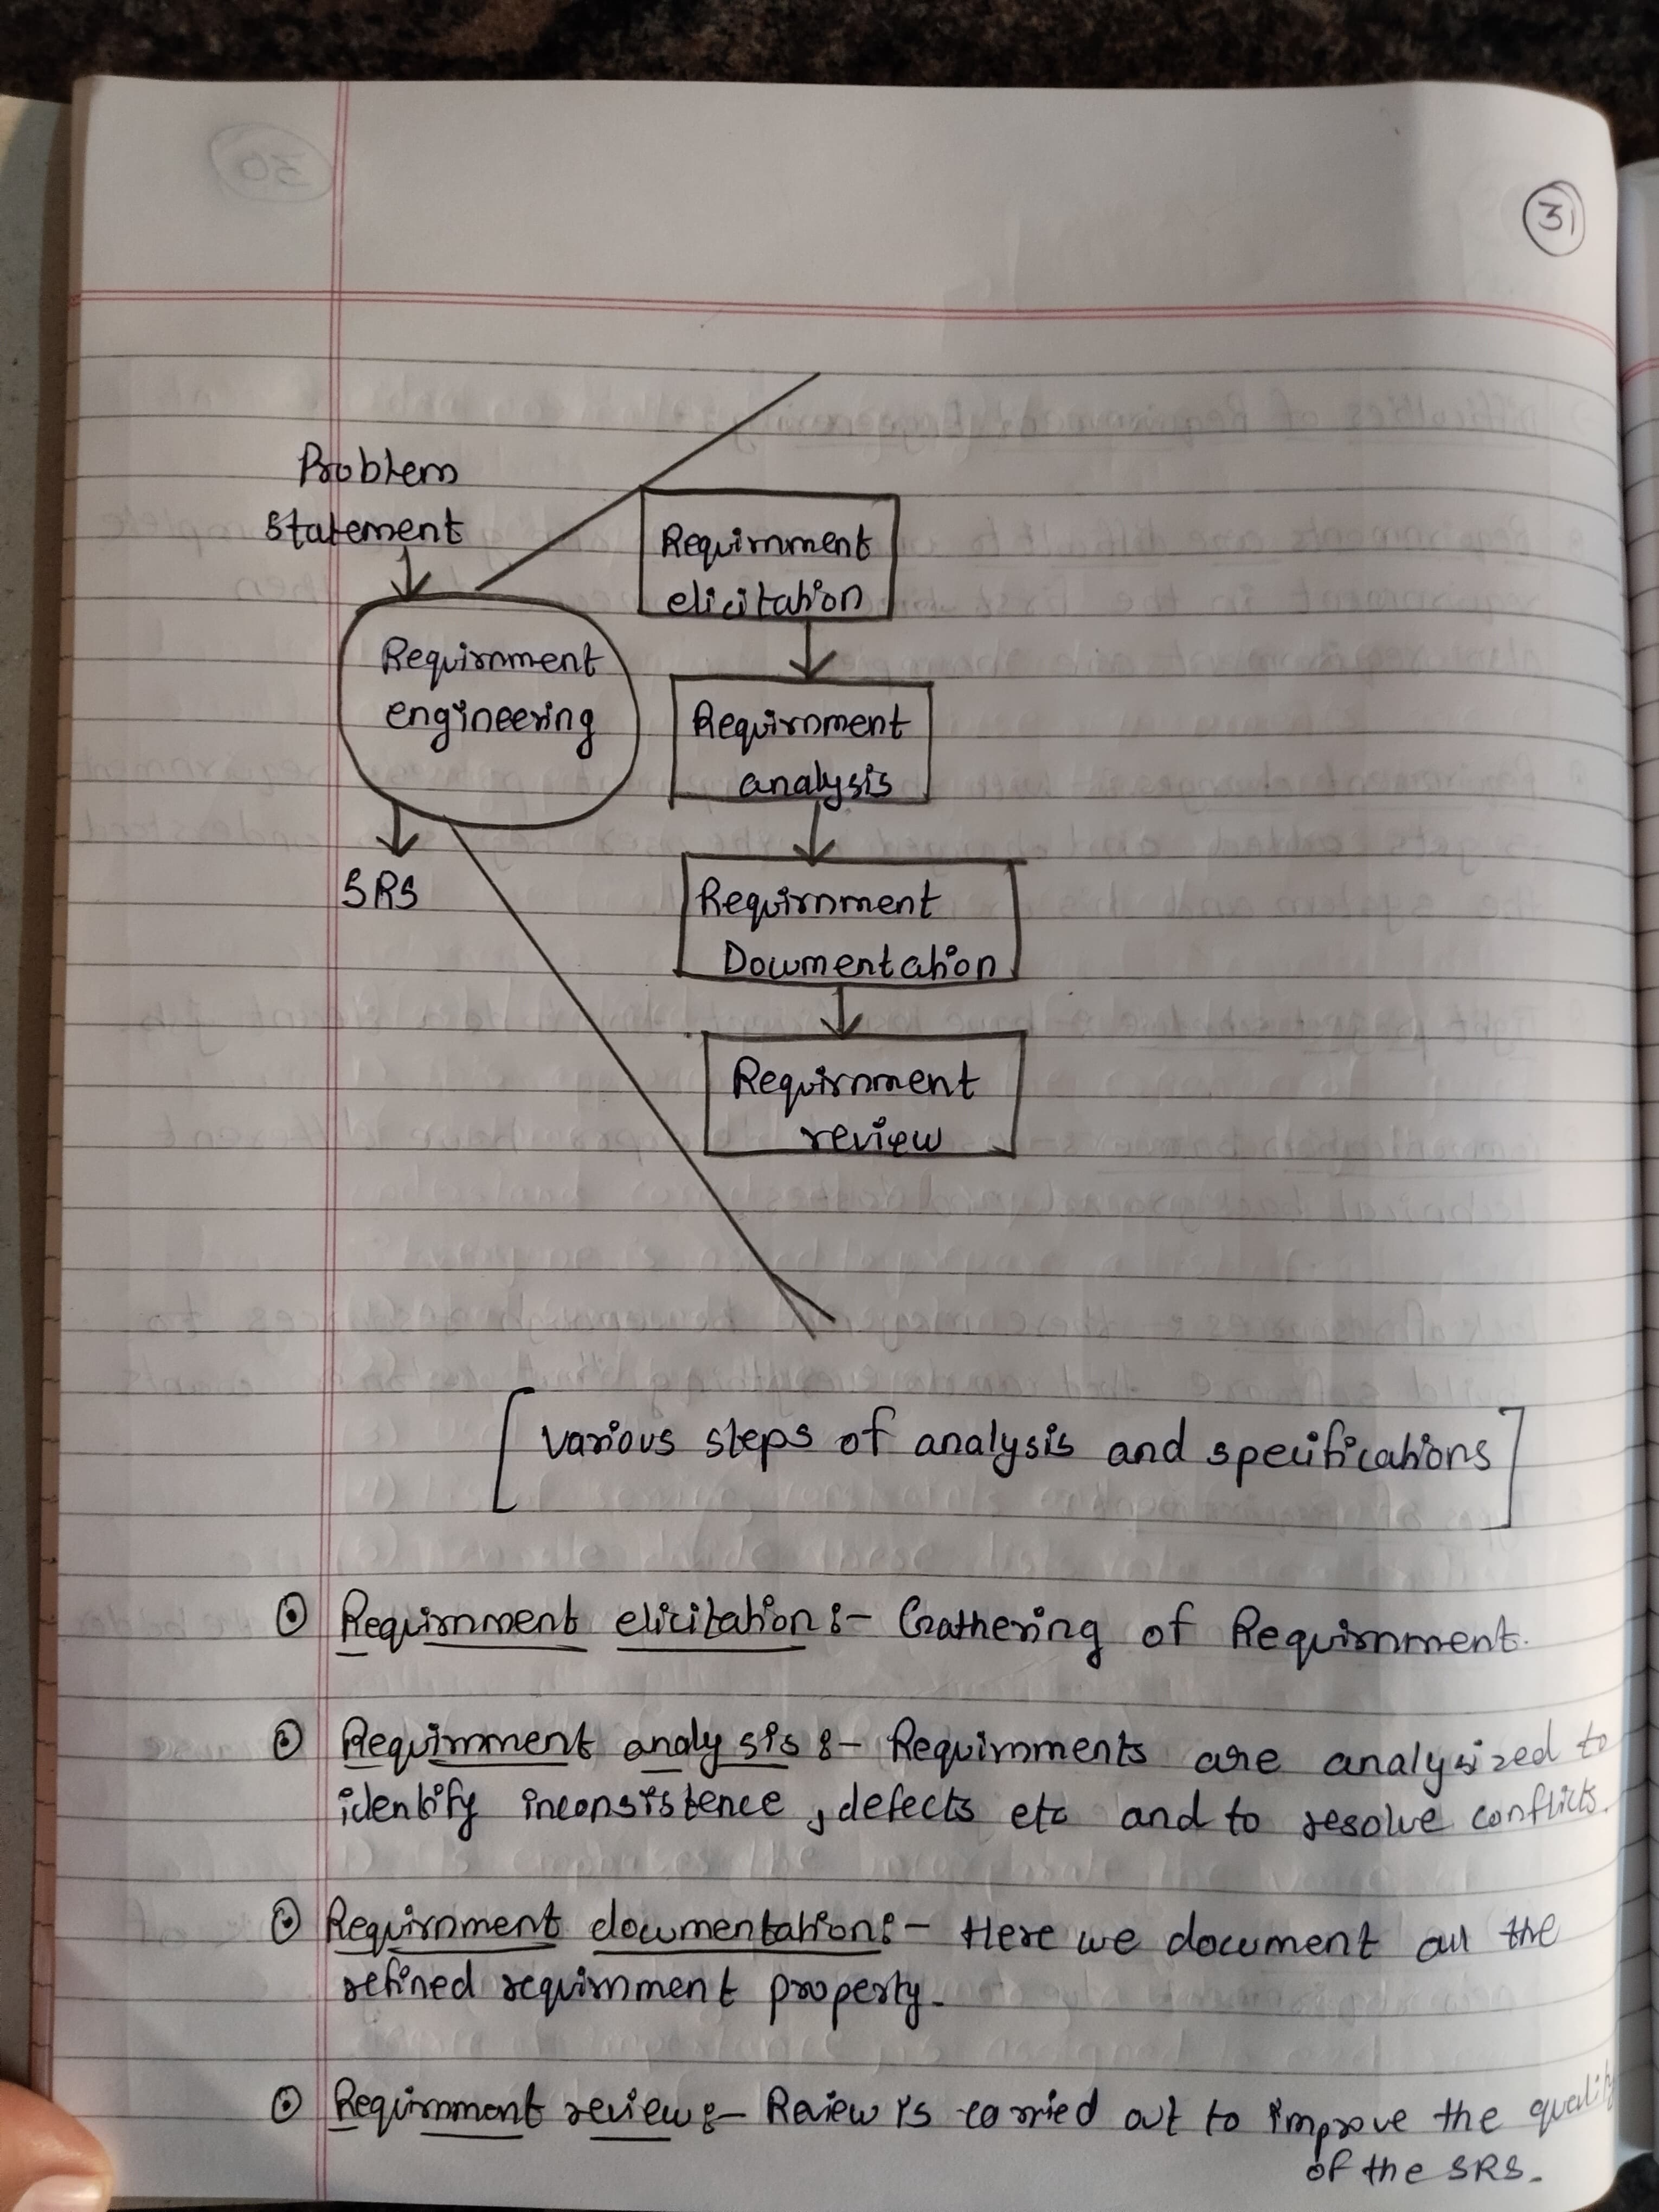 31
Problem
statement
Requirnment
engineering
SRS
Requirnment
elicitation
Requirnment
analysis
Requirnment
Documentation
Requirnment
review
[various steps of analysis and specifications]
Requirnment elicitation :- Gathering of Requirnment.
Requirnment analysis :- Requirnments are analysized to
identify inconsistence, defects etc and to resolve conflicts.
Requirnment documentation :- Here we document all the
refined requirnment property.
Requirnment review :- Review is carried out to improve the quality
of the SRS.